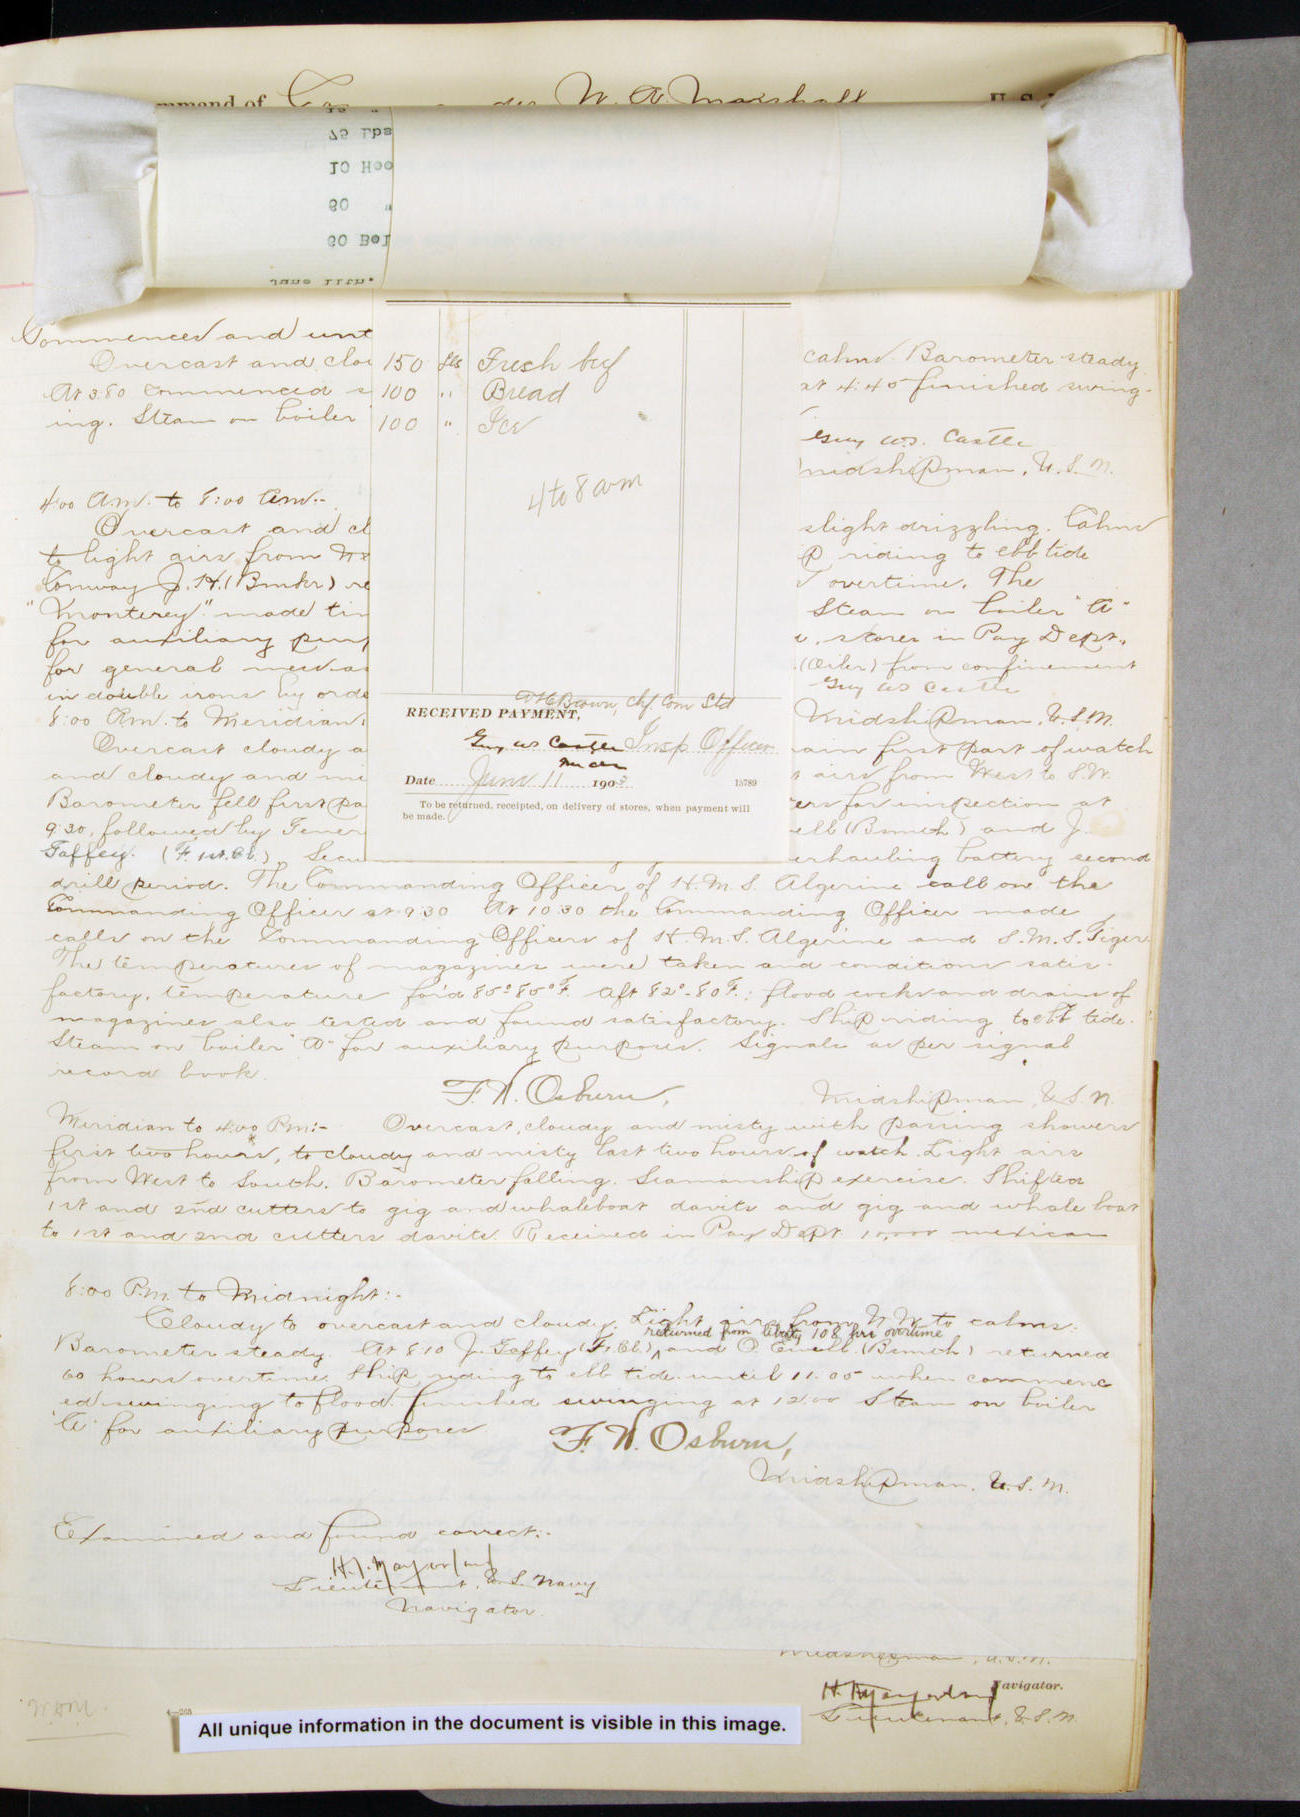 mmand of Commander W. A. Marshall U. S.
75 Lbs
10 Hoo
60 "
60 Bol
June 11th.
Commences and unt
Overcast and clou
calms. Barometer steady.
At 3:50 commenced s
at 4:45 finished swing-
ing. Steam on boiler
Guy W.S. Castle
Midshipman, U.S.N.
150 lbs Fresh beef
100 " Bread
100 " Ice
4 to 8 a.m
RECEIVED PAYMENT,
Guy W S Castle Insp. Officer
Date June 11 1903
15789
To be returned, receipted, on delivery of stores, when payment will
be made.
4:00 A.M. to 8:00 A.M.-
Overcast and cl
slight drizzling. Calms
to light airs from
p riding to ebb tide
Conway J. H. (Bmkr) re
overtime. The
"Monterey" made tim
Steam on boiler "A"
for auxiliary purp
stores in Pay Dept.,
for general
(Oiler) from confinement
in double irons by orde
Guy W S Castle
Midshipman, U.S.N.
8:00 AM. to Meridian:
Overcast cloudy a
rain first part of watch
and cloudy and mi
airs from West to S.W.
Barometer fell first pa
ers for inspection at
9:30, followed by Gener
ell (Bsmith) and J.
Gaffey. (F. 1st.Cl.) Secu
erhauling battery second
drill period. The Commanding Officer of H.M.S. Algerine call on the
Commanding Officer at 9:30 At 10:30 the Commanding Officer made
calls on the Commanding Officers of H.M.S. Algerine and S.M.S. Tiger.
The temperatures of magazines were taken and conditions satis-
factory, temperature for'd 85°-85°F. Aft 82°-80°F.; flood cocks and drains of
magazines also tested and found satisfactory. Ship riding to ebb tide.
Steam on boiler "A" for auxiliary purposes. Signals as per signal
record book.
F. N. Osburn,
Midshipman, U.S.N.
Meridian to 4:00 P.M:- Overcast, cloudy and misty with passing showers
first two hours, to cloudy and misty last two hours of watch. Light airs
from West to South. Barometer falling. Seamanship exercise. Shifted
1st and 2nd cutters to gig and whaleboat davits and gig and whale boat
to 1st and 2nd cutters davits. Received in Pay Dept 10,000 mexican
8:00 P.M. to Midnight:-
Cloudy to overcast and cloudy. Light airs from N.W. to calms.
returned from liberty 108 hrs overtime
Barometer steady. At 8:10 J. Gaffey (F.1Cl.) and O. Ewell (Bsmith) returned
60 hours overtime. Ship riding to ebb tide until 11:05 when commenc
ed swinging to flood. finished swinging at 12:00 Steam on boiler
"A" for auxiliary purposes
F. N. Osburn,
Midshipman, U.S.N.
Examined and found correct:-
Lieutenant, U.S. Navy
Navigator.
Midshipman, U.S.N.
Navigator.
Lieutenant, U.S.N.
All unique information in the document is visible in this image.